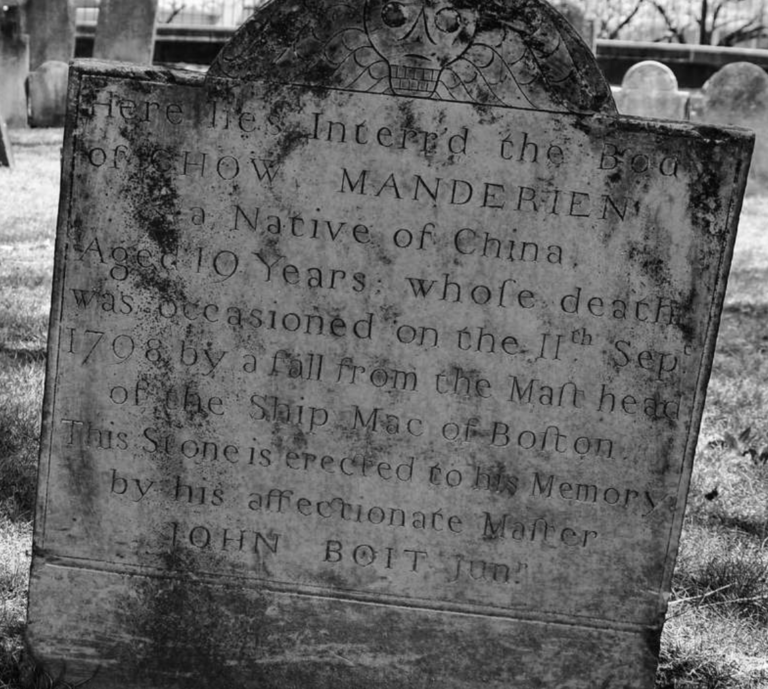 Here lies Interr'd the Bod
of CHOW MANDERIEN
a Native of China,
Aged 19 Years; whoſe death
was occasioned on the 11th Sept
1798 by a fall from the Maſt head
of the Ship Mac of Boſton.
This Stone is erected to his Memory
by his affectionate Maſter
JOHN BOIT Junr